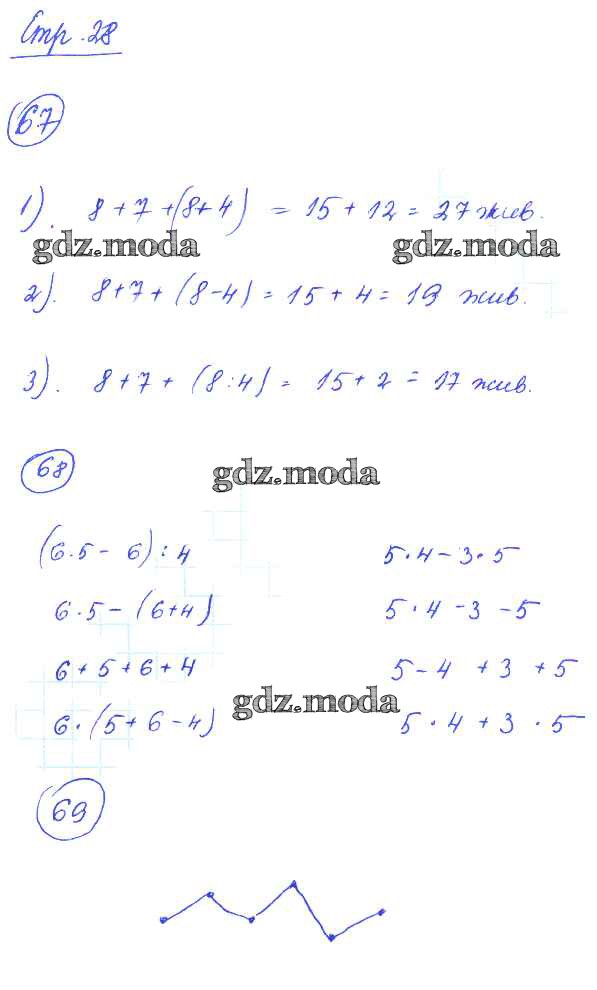 Стр. 28
67
1). 8 + 7 + (8 + 4) = 15 + 12 = 27 жив.
gdz.moda gdz.moda
2). 8 + 7 + (8 - 4) = 15 + 4 = 19 жив.
3). 8 + 7 + (8 : 4) = 15 + 2 = 17 жив.
68
gdz.moda
(6 · 5 - 6) : 4 5 · 4 - 3 · 5
6 · 5 - (6 + 4) 5 · 4 - 3 - 5
6 + 5 + 6 + 4 5 - 4 + 3 + 5
gdz.moda
6 · (5 + 6 - 4) 5 · 4 + 3 · 5
69